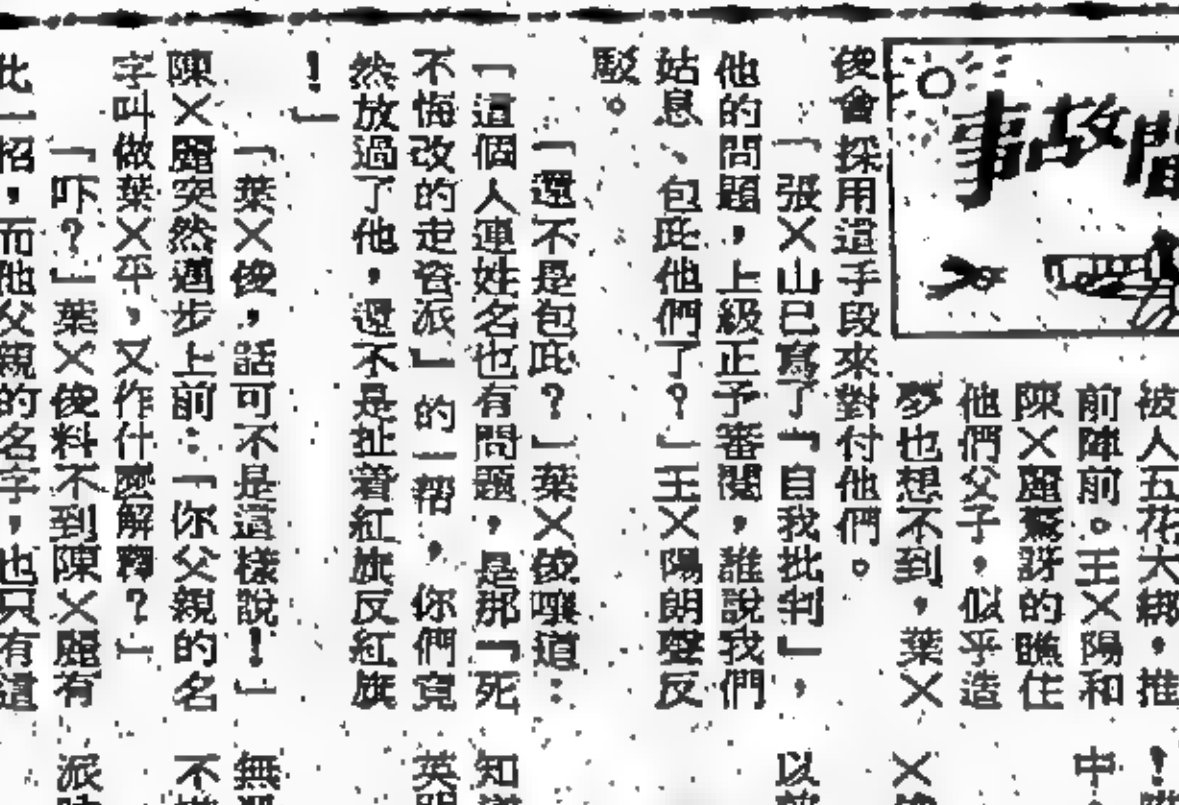 聞故事
被人五花大綁，推
前陣前。王×陽和
陳×麗驚訝的瞧住
他們父子，似乎造
夢也想不到，葉×
俊會採用這手段來對付他們。
「張×山已寫了『自我批判』，
他的問題，上級正予審閱，誰說我們
姑息、包庇他們了？」王×陽朗聲反
駁。
「還不是包庇？」葉×俊嚷道：
「這個人連姓名也有問題，是那『死
不悔改的走資派』的一幫，你們竟
然放過了他，還不是扯着紅旗反紅旗
！」
「葉×俊，話可不是這樣說！」
陳×麗突然邁步上前：「你父親的名
字叫做葉×平，又作什麼解釋？」
「吓？」葉×俊料不到陳×麗有
此一招，而他父親的名字，也只有這
！
中
×
以
知
英
無
不
派